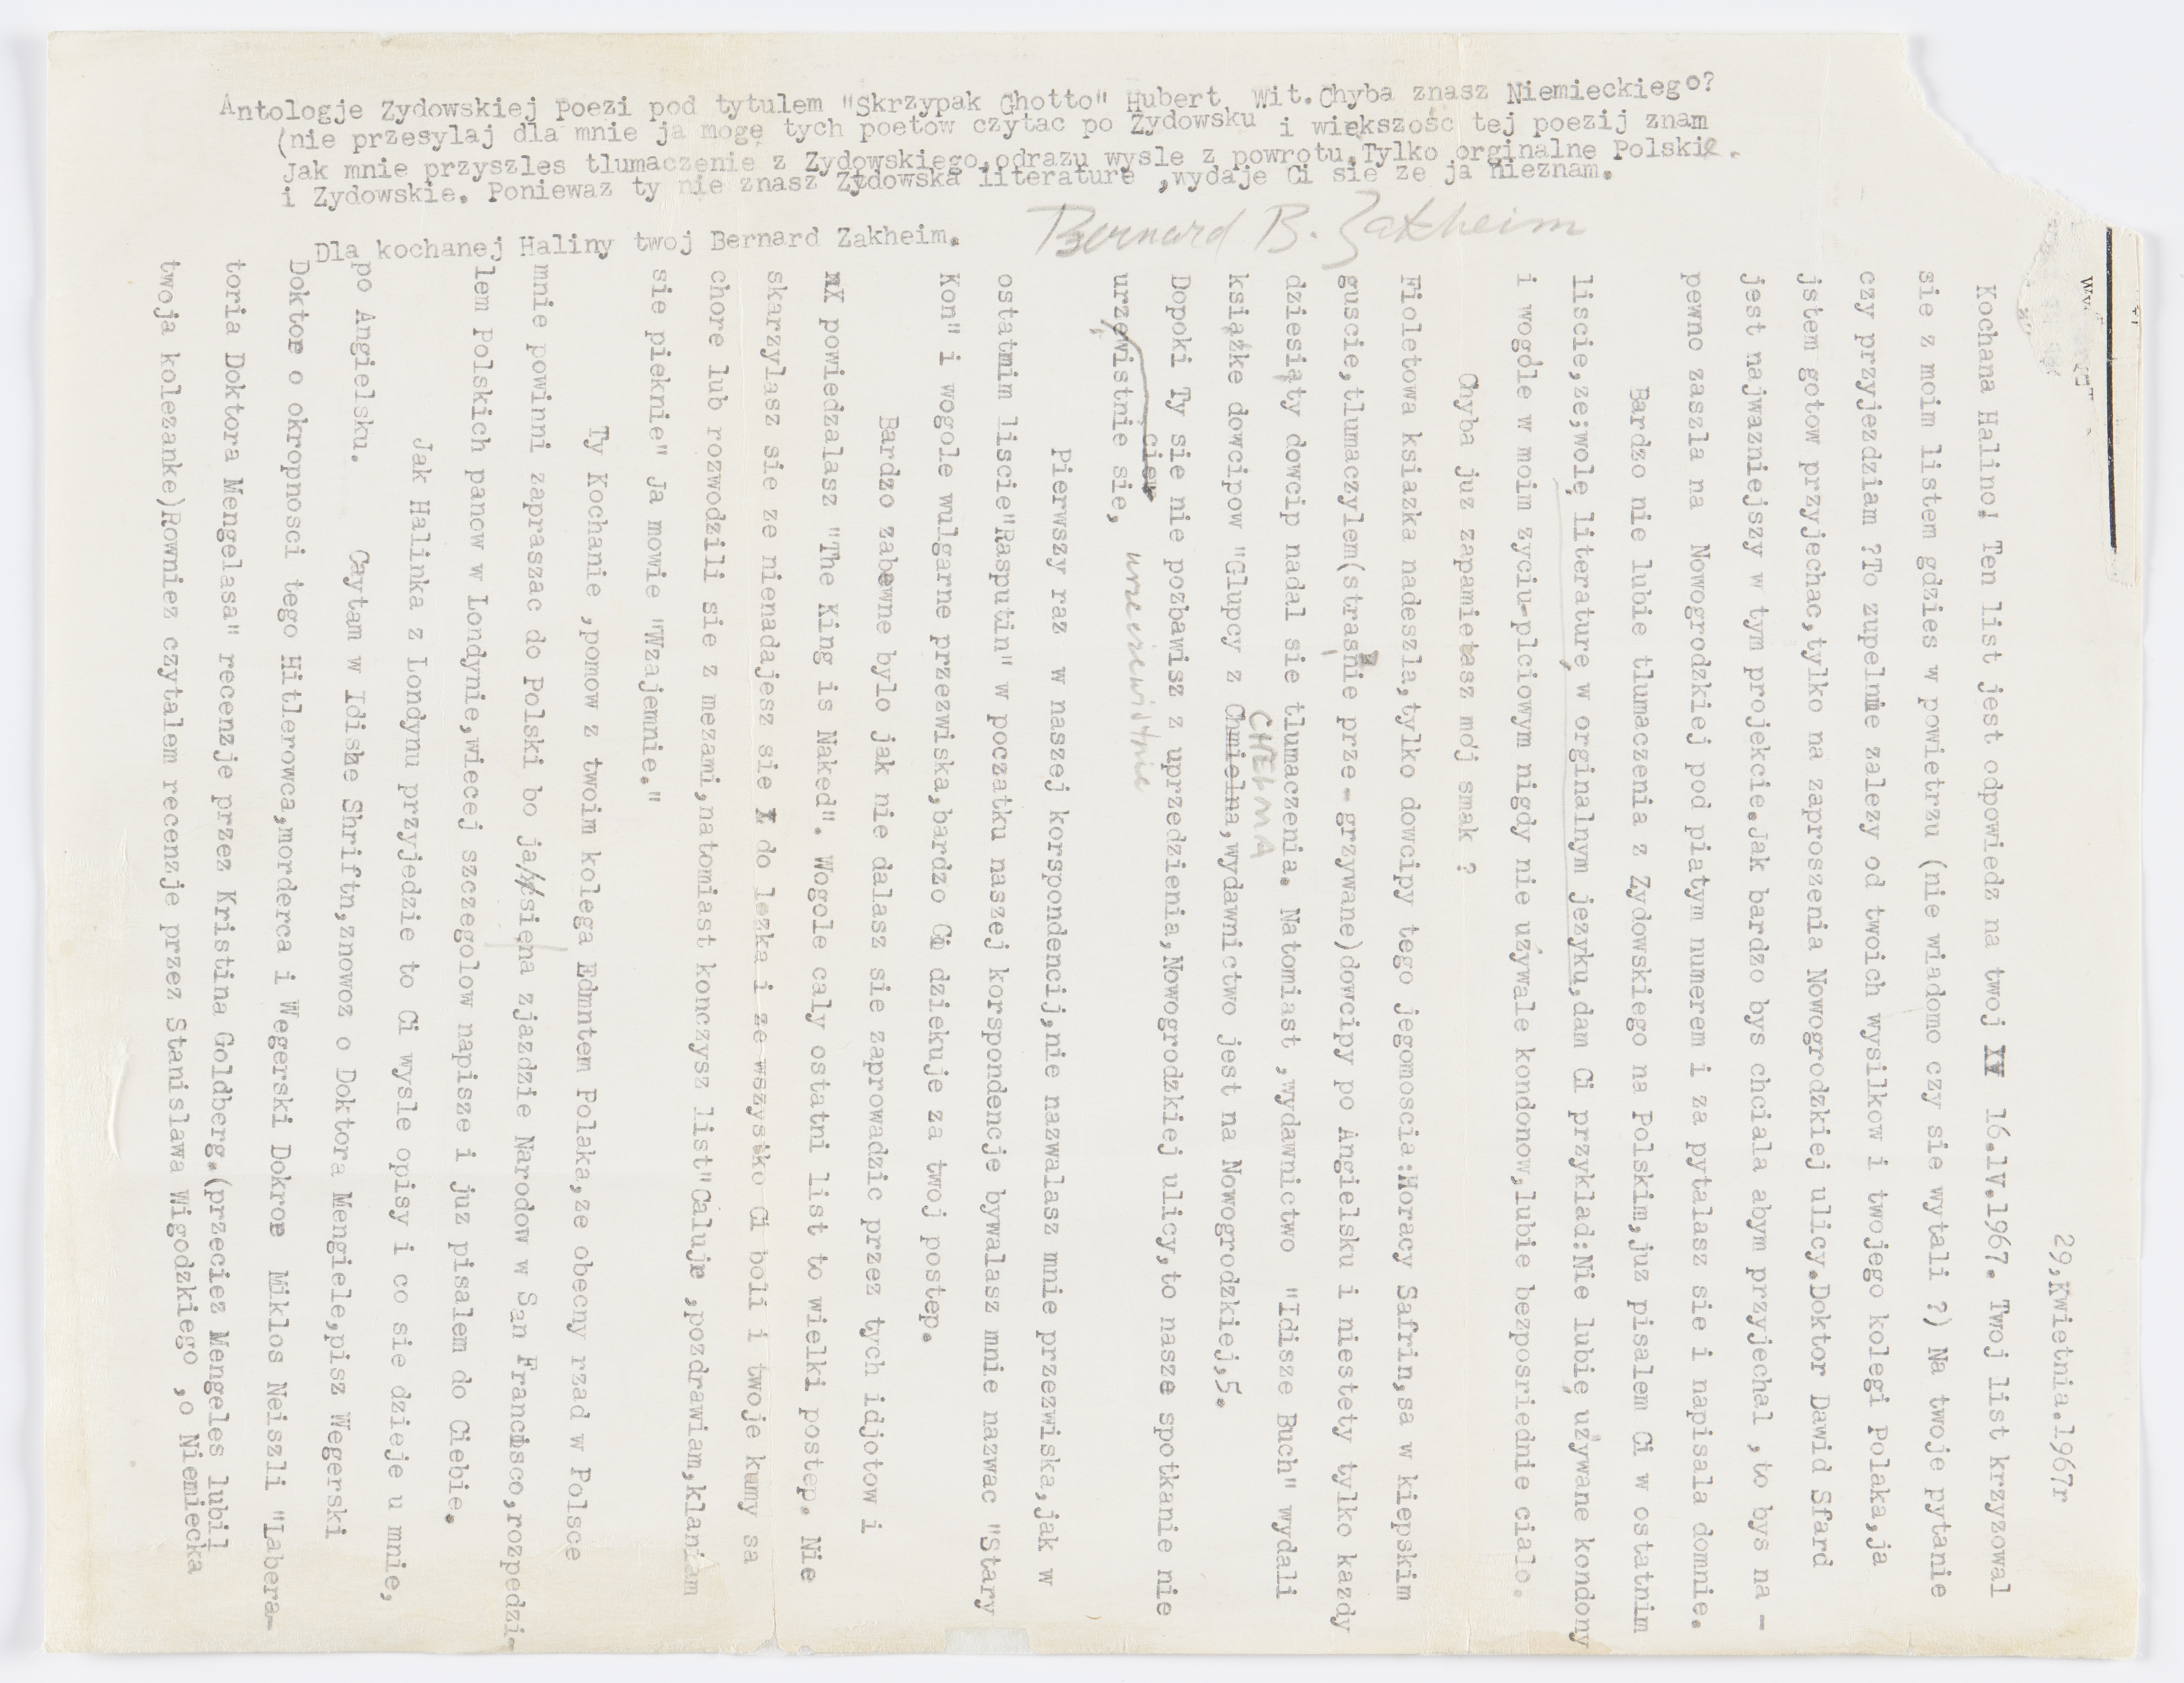 29,Kwietnia.1967r
Kochana Halino! Ten list jest odpowiedz na twoj 16.lV.1967. Twoj list krzyzowal
sie z moim listem gdzies w powietrzu (nie wiadomo czy sie wytali ?) Na twoje pytanie
czy przyjezdziam ?To zupelnie zalezy od twoich wysilkow i twojego kolegi Polaka,ja
jstem gotow przyjechac,tylko na zaproszenia Nowogrodzkiej ulicy.Doktor Dawid Sfard
jest najwazniejszy w tym projekcie.Jak bardzo bys chciala abym przyjechal ,to bys na -
pewno zaszla na Nowogrodzkiej pod piatym numerem i za pytalasz sie i napisala domnie.
Bardzo nie lubie tlumaczenia z Zydowskiego na Polskim,juz pisalem Ci w ostatnim
liscie,ze;wolę literaturę w orginalnym jezyku,dam Ci przyklad:Nie lubię używane kondony
i wogóle w moim zyciu-plciowym nigdy nie używale kondonow,lubie bezposriednie cialo.
Chyba juz zapamietasz mój smak ?
Fioletowa ksiazka nadeszla,tylko dowcipy tego jegomoscia:Horacy Safrin,sa w kiepskim
guscie,tlumaczylem(strasnie prze - grzywane)dowcipy po Angielsku i niestety tylko kazdy
dziesiąty dowcip nadal sie tlumaczenia. Natomiast ,wydawnictwo "Idisze Buch" wydali
książke dowcipow "Glupcy z Chmielna,wydawnictwo jest na Nowogrodzkiej,5.
CHEŁMA
Dopoki Ty sie nie pozbawisz z uprzedzienia,Nowogrodzkiej ulicy,to nasze spotkanie nie
urzewistnie sie, urzeczewistnie
ciew
Pierwszy raz w naszej korspondencij,nie nazwalasz mnie przezwiska,jak w
ostatmim liscie"Rasputin" w poczatku naszej korspondencje bywalasz mnie nazwac "Stary
Kon" i wogole wulgarne przezwiska,bardzo Ci dziekuje za twoj postep.
Bardzo zabewne bylo jak nie dalasz sie zaprowadzic przez tych idjotow i
powiedzalasz "The King is Naked". Wogole caly ostatni list to wielki postep. Nie
skarzylasz sie ze nienadajesz sie do lezka i ze wszystko Ci boli i twoje kumy sa
chore lub rozwodzili sie z mezami,natomiast konczysz list"Caluje ,pozdrawiam,klaniam
sie pieknie" Ja mowie "Wzajemnie."
Ty Kochanie ,pomow z twoim kolega Edmntem Polaka,ze obecny rzad w Polsce
mnie powinni zapraszac do Polski bo ja/sięna zjazdzie Narodow w San Francisco,rozpedzi-
lem Polskich panow w Londynie,wiecej szczegolow napisze i juz pisalem do Ciebie.
Jak Halinka z Londynu przyjedzie to Ci wysle opisy i co sie dzieje u mnie,
po Angielsku. Caytam w Idishe Shriftn,znowoz o Doktora Mengiele,pisz Wegerski
Doktor o okropnosci tego Hitlerowca,morderca i Wegerski Dokror Miklos Neiszli "Labera-
toria Doktora Mengelasa" recenzje przez Kristina Goldberg.(przeciez Mengeles lubil
twoja kolezanke)Rowniez czytalem recenzje przez Stanislawa Wigodzkiego ,o Niemiecka
Antologje Zydowskiej Poezi pod tytulem "Skrzypak Ghotto" Hubert, Wit.Chyba znasz Niemieckiego?
(nie przesylaj dla mnie ja mogę tych poetow czytac po Zydowsku i większośc tej poezij znam
Jak mnie przyszles tlumaczenie z Zydowskiego,odrazu wysle z powrotu.Tylko orginalne Polskie.
i Zydowskie. Poniewaz ty nie znasz Zydowska literature ,wydaje Ci sie ze ja nieznam.
Dla kochanej Haliny twoj Bernard Zakheim. Bernard B. Zakheim